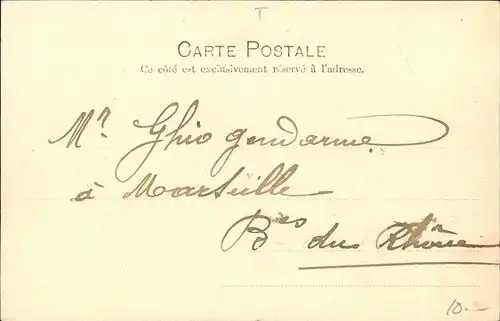 T
CARTE POSTALE
Ce côté est exclusivement réservé à l'adresse.
Mr Ghio gendarme
à Marseille
Bes du Rhône
10.—